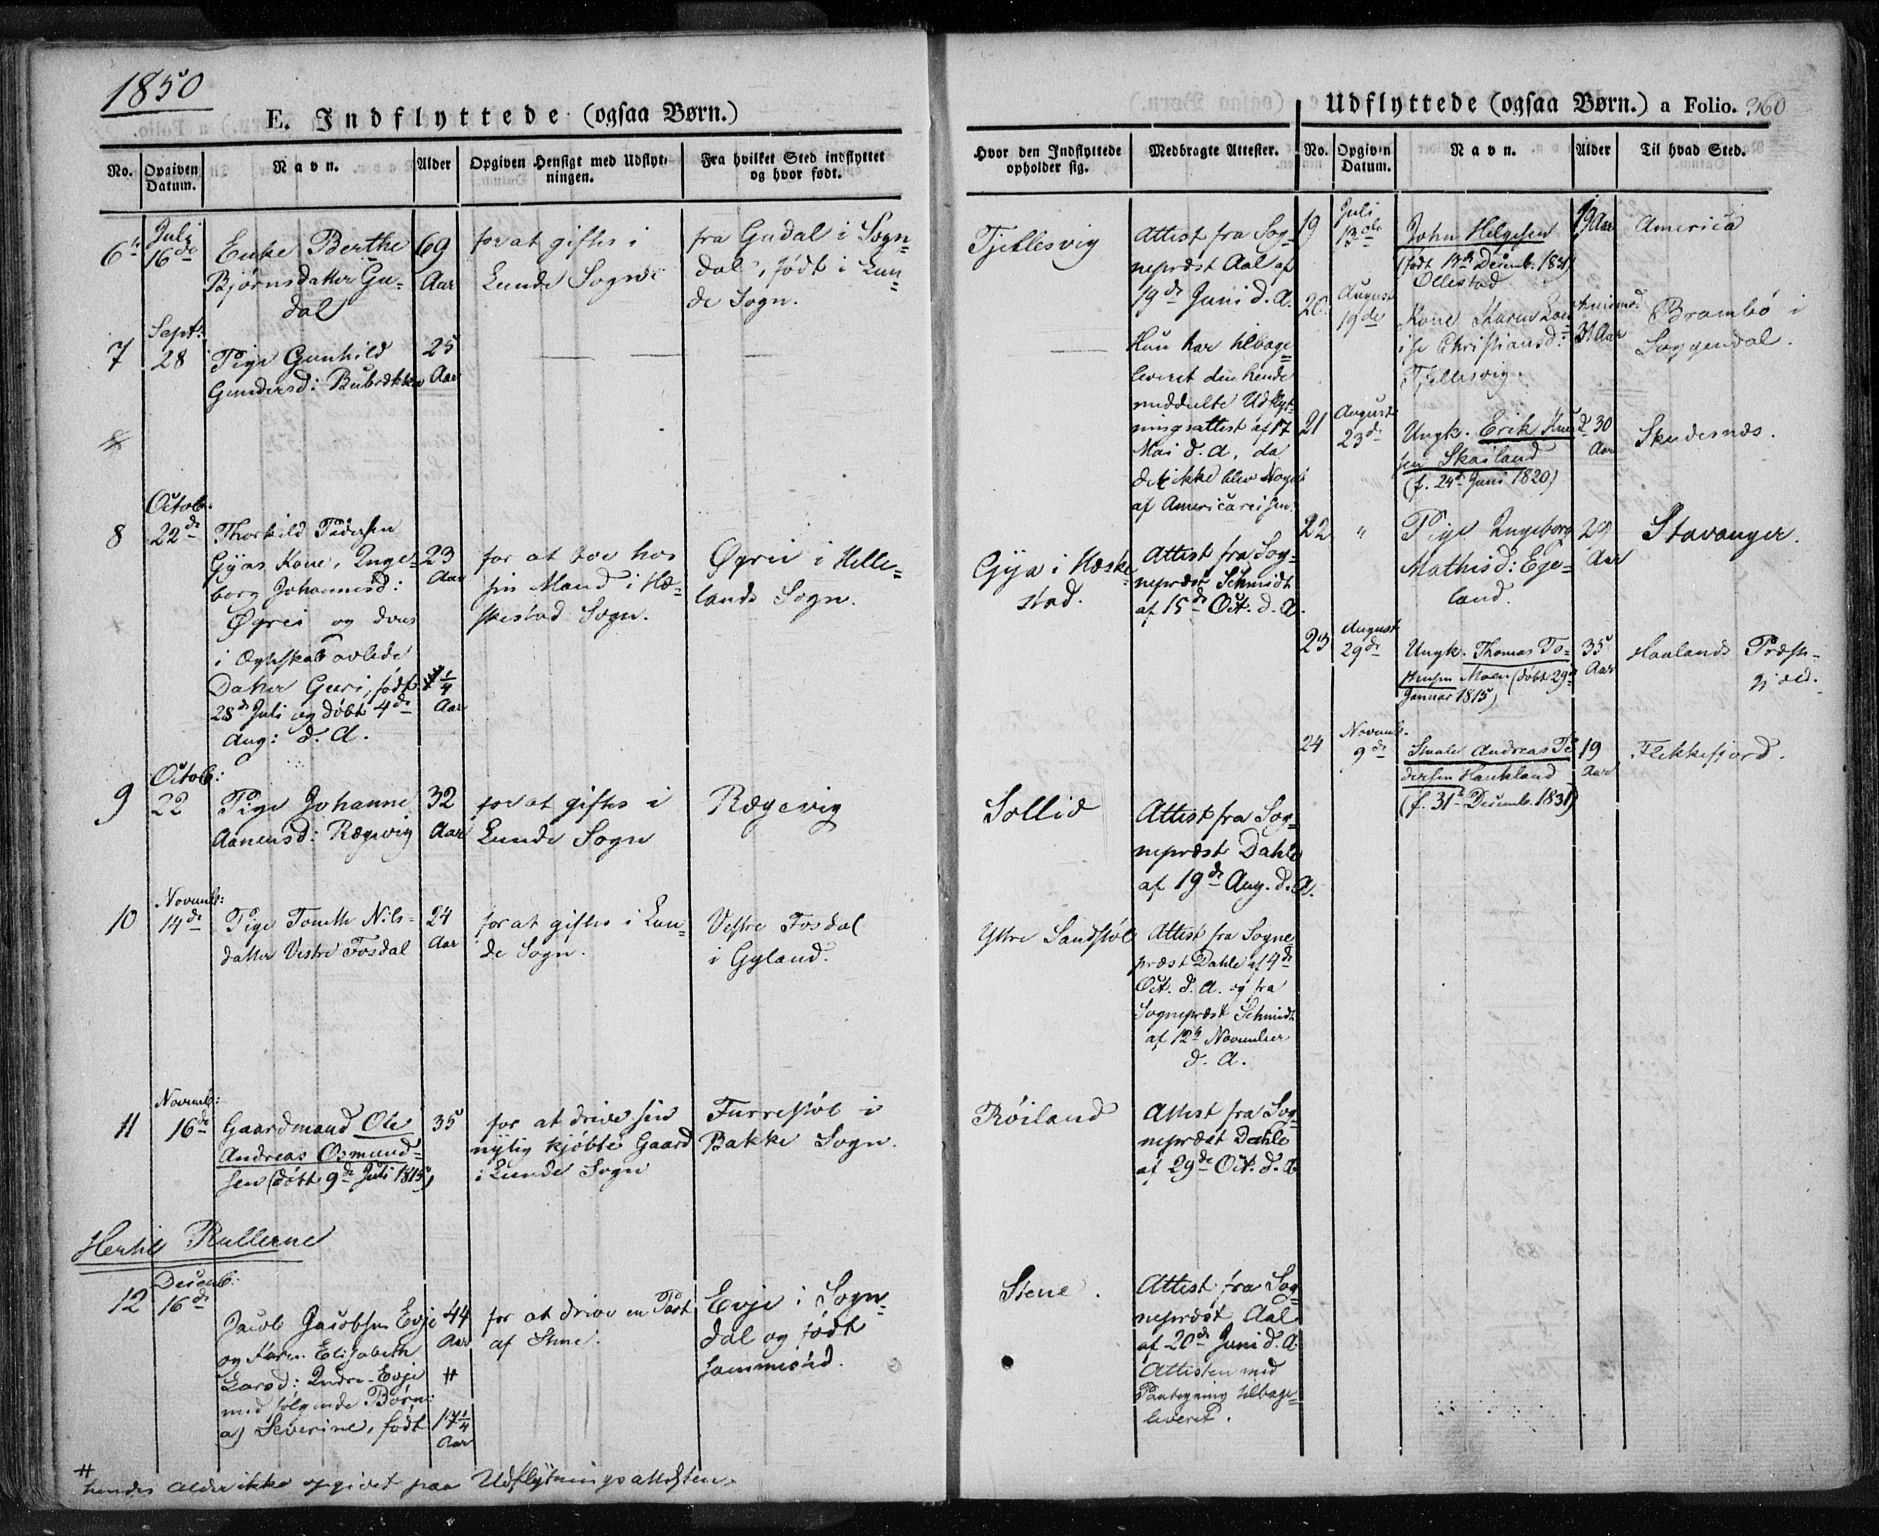 1850
E. Indflyttede (ogsaa Børn.)
No.
Opgiven Datum.
Navn.
Alder
Opgiven Hensigt med Udflytningen.
Fra hvilket Sted indflyttet og hvor født.
6te
Juli
16de
Enke Berthe
Bjørnsdatter Gu-
dal
69
Aar
for at giftes i
Lunde Sogn
fra Gudal i Sogn-
dal, født i Lun-
de Sogn.
7
Sept:
28
Pige Gunhild
Gundersd: Bubrækken
25
Aar
8
Octob.
22de
Thorkild Pedersen
Gyas Kone, Inge-
borg Johannesd:
Øgrei og deres
i Ægteskab avlede
Datter Guri, født
28de Juli og døbt 4de
Aug: d. A.
23
Aar
1/4
Aar
for at boe hos
sin Mand i Hæ-
skestad Sogn.
Øgrei i Helle-
lands Sogn.
9
Octob:
22
Pige Johanne
Aanensd: Rægevig
32
Aar
for at giftes i
Lunde Sogn
Rægevig
10
Novemb:
14de
Pige Tomth Nils-
datter Vestre Fosdal
24
Aar
for at giftes i Lun-
de Sogn.
Vestre Fosdal
i Gyland.
11
Novemb:
16de
Gaardmand Ole
Andreas Osmund-
sen (døbt 9de Juli 1815)
35
for at drive sin
nylig kjøbte Gaard
i Lunde Sogn
Furrestøl i
Bakke Sogn.
Hertil Rullerne
12
Decemb:
16de
Jacob Jacobsen Evje
og Kone Elisabeth
Larsd: Indre-Evje
med følgende Børn:
a) Severine, født
44
Aar
#
17 1/4
Aar
for at drive en Part
af Stene.
Evje i Sogn-
dal og født
sammested.
# hendes Alder ikke opgivet paa Udflytningsattesten.
Udflyttede (ogsaa Børn.) a Folio. 360
Hvor den Indflyttede opholder sig.
Medbragte Attester.
No.
Opgiven Datum.
Navn.
Alder
Til hvad Sted.
Tjellesvig
Attest fra Sog-
nepræst Aal af
19de Juni d. A.
Hun har tilbage-
leveret den hende
meddeelte Udflyt-
ningsattest af 17
Mai d. A, da
det ikke blev Noget
af Americareisen.
Gya i Hæske-
stad.
Attest fra Sog-
nepræst Schmidt
af 15de Oct. d. A.
Sollid
Attest fra Sog-
nepræst Dahle
af 19de Aug. d. A.
Yttre Sandstøl
Attest fra Sogne-
præst Dahle af 4de
Oct. d. A. og fra
Sognepræst Schmidt
af 12te November
d. A.
Røiland
Attest fra Sog-
nepræst Dahle
af 29de Oct. d. A.
Stene.
Attest fra Sog-
nepræst Aal
af 20de Juni d. A.
Attesten med
Paategning tilbage-
leveret.
19
Juli
13de
John Helgesen
(født 13de Decemb. 1831)
Ollestad
19 Aar
America
20
August
19de
Kone Karen Lov-
ise Christiansd:
Tjellesvig.
31 Aar
Brambø i
Soggendal.
21
August
23de
Ungk. Erik Knud-
sen Skailand
(f. 24de Juni 1820)
30
Aar
Skudesnæs.
22
"
Pige Ingeborg
Mathisd: Ege-
land.
29
Aar
Stavanger.
23
August
29de
Ungk. Thomas To-
Moen (døbt 29de
Januar 1815)
35
Aar
Haalands Præste-
gjeld.
24
Novemb.
9de
Andreas Pe-
dersen Haukland
(f. 31te Decemb. 1831)
19
Aar
Flekkefjord.